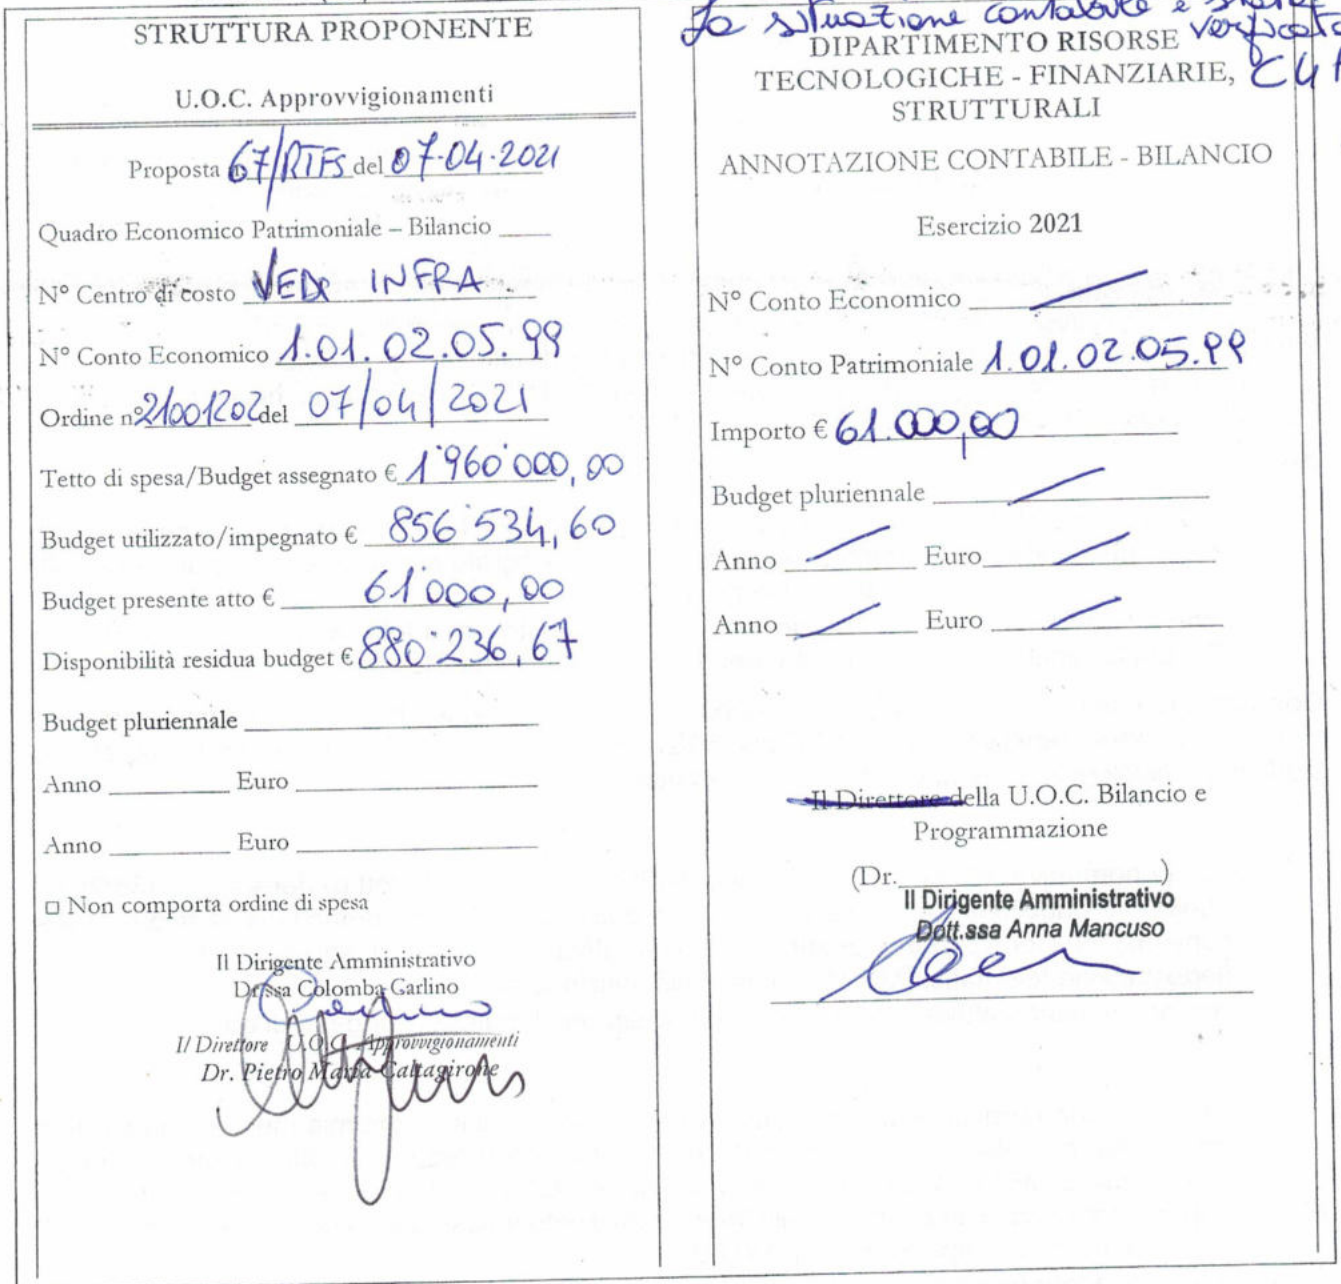 STRUTTURA PROPONENTE
U.O.C. Approvvigionamenti
Proposta n. 67/RTFS del 07-04-2021
Quadro Economico Patrimoniale – Bilancio ____
N° Centro di costo VEDI INFRA
N° Conto Economico 1.01.02.05.99
Ordine n° 21001202 del 07/04/2021
Tetto di spesa/Budget assegnato € 1'960'000,00
Budget utilizzato/impegnato € 856'534,60
Budget presente atto € 61'000,00
Disponibilità residua budget € 880'236,67
Budget pluriennale ____
Anno ____ Euro ____
Anno ____ Euro ____
□ Non comporta ordine di spesa
Il Dirigente Amministrativo
Dr.ssa Colomba Garlino
Il Direttore U.O.C. Approvvigionamenti
Dr. Pietro Maria Caltagirone
La situazione contabile è
verificata
DIPARTIMENTO RISORSE
TECNOLOGICHE - FINANZIARIE,
STRUTTURALI
ANNOTAZIONE CONTABILE - BILANCIO
Esercizio 2021
N° Conto Economico /
N° Conto Patrimoniale 1.01.02.05.99
Importo € 61.000,00
Budget pluriennale /
Anno / Euro /
Anno / Euro /
Il Direttore della U.O.C. Bilancio e
Programmazione
(Dr. ____)
Il Dirigente Amministrativo
Dott.ssa Anna Mancuso